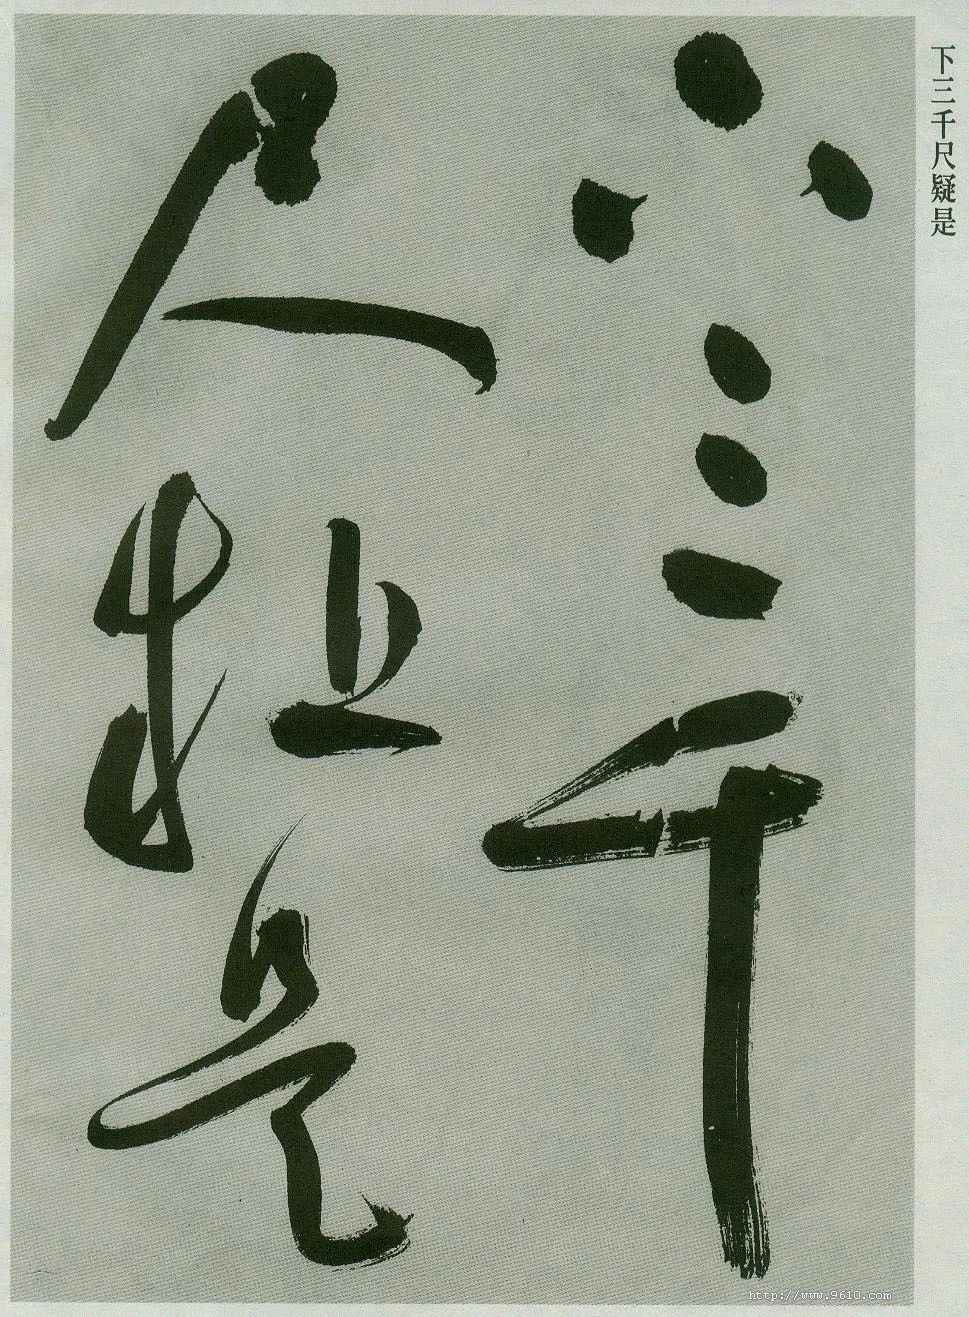 下三千尺疑是
下三千
尺疑是
http://www.9610.com